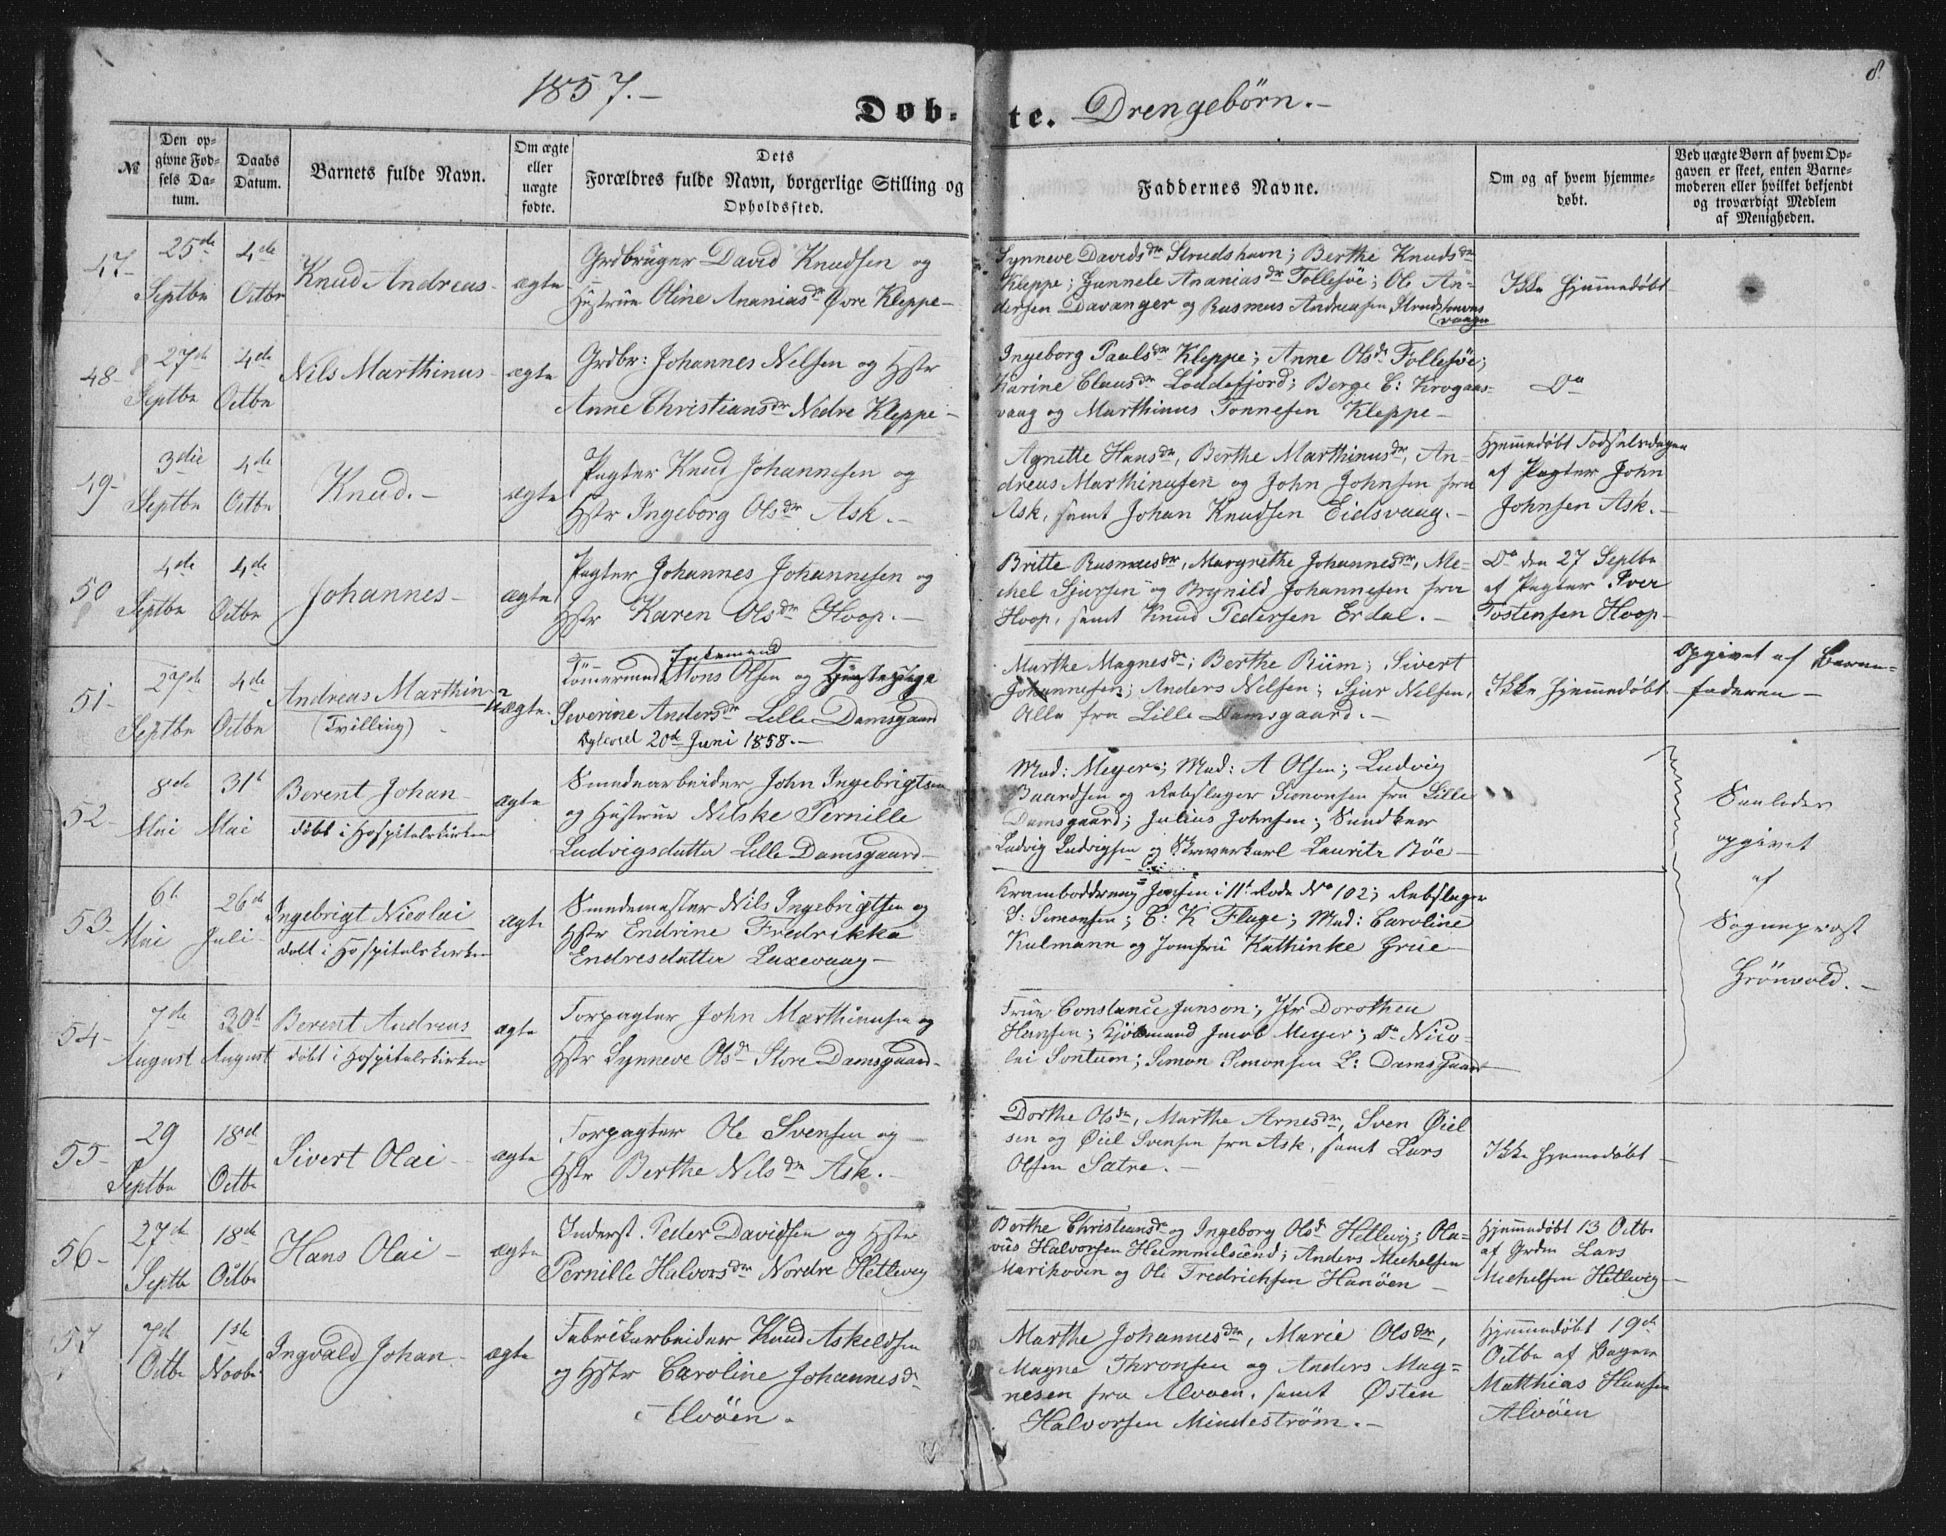 1857.-
Døb-te. Drengebörn.-
8.
№
Den op-
givne Fød-
sels Da-
tum.
Daabs
Datum.
Barnets fulde Navn.
Om ægte
eller
uægte
fødte.
Dets
Forældres fulde Navn, borgerlige Stilling og
Opholdssted.
Faddernes Navne.
Om og af hvem hjemme-
døbt.
Ved uægte Børn af hvem Op-
gaven er skeet, enten Barne-
moderen eller hvilket bekjendt
og troværdigt Medlem
af Menigheden.
47-
25de
Septbr
4de
Octbr
Knud Andreas-
ægte
Grdbruger David Knudsen og
Hustrue Oline Ananiasdr Øvre Kleppe-
Synneve Davidsdr Strudshavn; Berthe Knudsdr
Kleppe; Gunnele Ananiasdr Follesöe; Ole An-
dersen Davanger og Rasmus Andreasen Strudshavns
vaagen
Ikke hjemmedøbt
48-
27de
Septbr
4de
Octbr
Nils Marthinus-
ægte
Grdbr: Johannes Nelsen og Hstr
Anne Christiansdr Nedre Kleppe-
Ingeborg Paulsdr Kleppe; Anne Olsdr Follesöe;
Karine Clausdr Loddefjord; Berge C: Krogaas-
vaag og Marthinus Tonnesen Kleppe-
Do
49-
3die
Septbr
4de
Octbr
Knud.-
ægte
Pagter Knud Johannesen og
Hstr Ingeborg Olsdr Ask.-
Agnette Hansdr, Berthe Marthinusdr, An-
dreas Marthinusen og John Johnsen fra
Ask, samt Johan Knudsen Eidsvaag.-
Hjemmedøbt Fødselsdagen
af Pagter John
Johnsen Ask.-
50
4de
Septbr
4de
Octbr
Johannes-
ægte
Pagter Johannes Johannesen og
Hstr Karen Olsdr Hoop.-
Britte Rasmusdr, Margrethe Johannesdr, Me-
chel Sjursen og Brynild Johannesen fra
Hoop, samt Knud Pedersen Erdal.-
Do den 27 Septbr
af Pagter Iver
Tostensen Hoop-
51-
27de
Septbr
4de
Octbr
Andreas Marthin
(Tvilling)
uægte.
Enkemand
Tömermand Mons Olsen og Tjenestepige
Severine Andersdr Lille Damsgaard
20de Juni 1858.-
Marthe Magnesdr; Berthe Riim; Sivert
Johannesen; Anders Nilsen; Sjur Nilsen,
Alle fra Lille Damsgaard.-
Ikke hjemmedøbt
Opgivet af Barne-
faderen-
52-
8de
Mai
31t
Mai
Berent Johan-
døbt i Hospitalskirken
ægte
Smedearbeider John Ingebrigtsen
og Hustrue Nilske Pernille
Ludvigsdatter Lille Damsgaard-
Mad: Meyer; Mad: A Olsen; Ludvig
Baardsen og Rebslager Simonsen fra Lille
Damsgaard; Julius Johnsen;
Ludvig Ludvigsen og Lauritz Böe-
Saaledes
opgivet
af
Sogneprest
Grönvold.-
53-
6t
Mai
26de
Juli-
Ingebrigt Nicolai
døbt i Hospitalskirken
ægte
Smedemester Nils Ingebrigtsen og
Hstr Endrine Fredrikka
Endresdatter Laxevaag-
Jensen i 11t Rode No 102; Rebslager
S: Simonsen; C: K Fluge; Mad: Caroline
Kulmann og Jomfru Kathinke Grüe-
54-
7de
August
30t
August
Berent Andreas
døbt i Hospitalskirken
ægte
Forpagter John Marthinusen og
Hstr Synneve Olsdr Store Damsgaard-
Frue Constance Janson; Jfr Dorothea
Hansen; Kjöbmand Jacob Meyer; Do Nico-
lai Sontum; Simon Simonsen L: Damsgaard
55-
29
Septbr
18de
Octbr
Sivert Olai-
ægte
Forpagter Ole Svensen og
Hstr Berthe Nilsdr Ask.-
Dorthe Olsdr, Marthe Arnesdr, Sven Øiel
sen og Øiel Svensen fra Ask, samt Lars
Olsen Sætre.-
Ikke hjemmedøbt
56-
27de
Septbr
18de
Octbr
Hans Olai-
ægte
Inderst. Peder Davidsen og Hstr
Pernille Halvorsdr Nordre Hetlevig
Berthe Christiansdr og Ingeborg Olsdr Hetlevig; Ola-
vus Halvorsen Hiemmelsund; Anders Mechelsen
Marikoven og Ole Fredrichsen Hanöen-
Hjemmedøbt 13 Octbr
af Grdm Lars
Michelsen Hetlevig-
57
7de
Octbr
1ste
Novbr
Ingvald Johan-
ægte
Fabrikarbeider Knud Askeldsen
og Hstr Caroline Johannesdr
Alvöen.
Marthe Johannesdr, Marie Olsdr,
Magne Thronsen og Anders Mag-
nesen fra Alvöen, samt Østen
Halvorsen Mindeström.-
Hjemmedøbt 19de
Octbr af Bager
Matthias Hansen
Alvöen